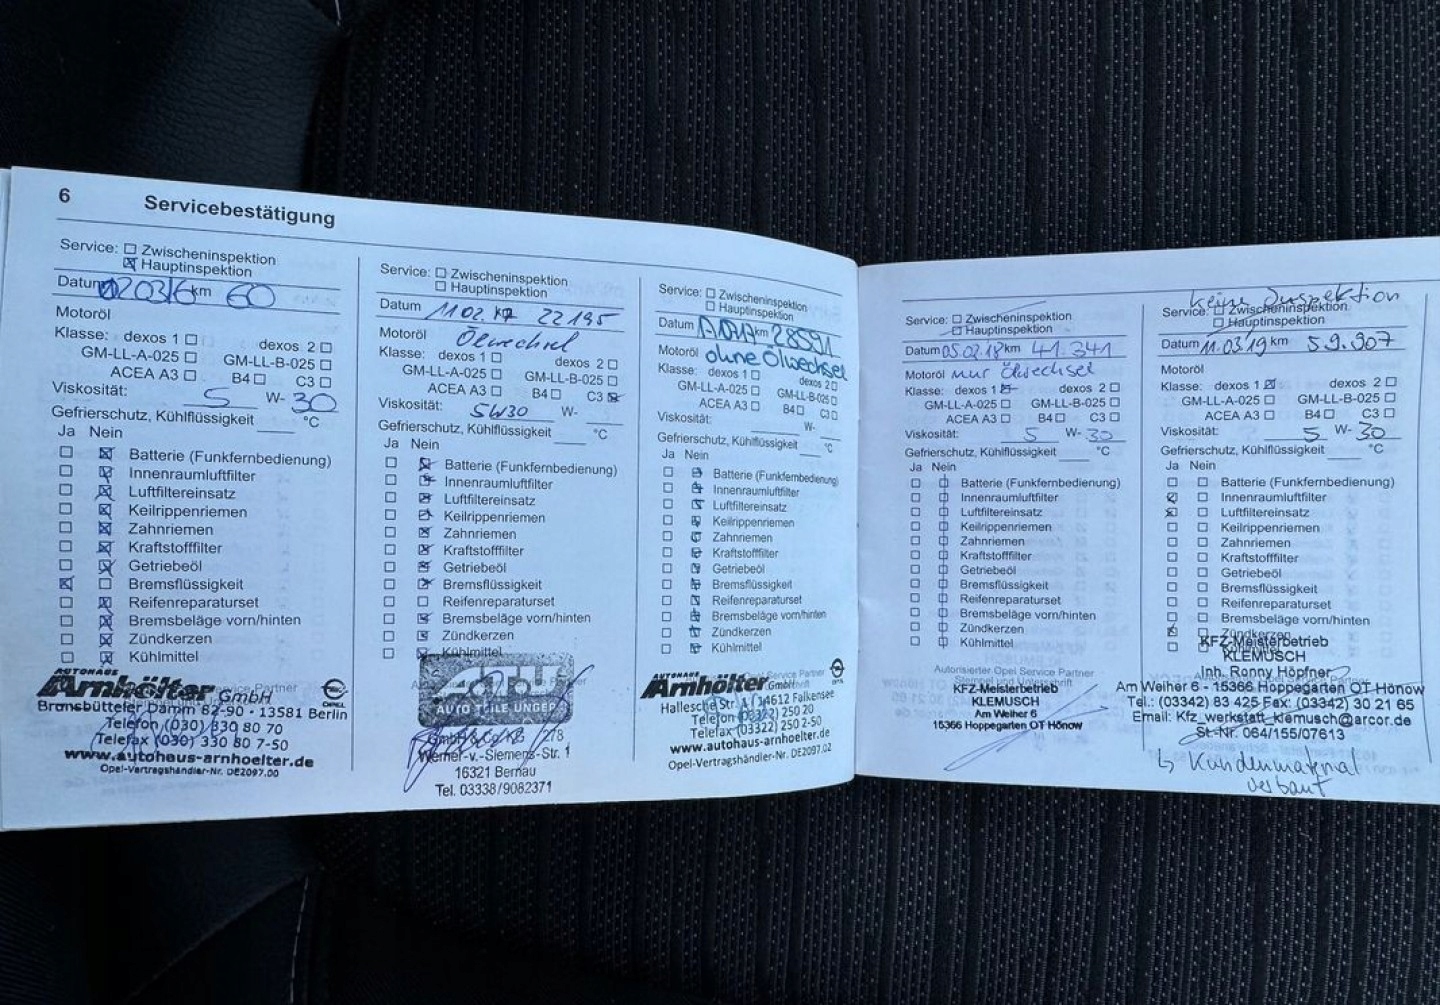 6 Servicebestätigung
Service: Zwischeninspektion
Hauptinspektion
Datum km 60
Motoröl
Klasse: dexos 1 dexos 2
GM-LL-A-025 GM-LL-B-025
ACEA A3 B4 C3
Viskosität: 5 W- 30
Gefrierschutz, Kühlflüssigkeit °C
Ja Nein
Batterie (Funkfernbedienung)
Innenraumluftfilter
Luftfiltereinsatz
Keilrippenriemen
Zahnriemen
Kraftstofffilter
Getriebeöl
Bremsflüssigkeit
Reifenreparaturset
Bremsbeläge vorn/hinten
Zündkerzen
Kühlmittel
AUTOHAUS
Arnhölter GmbH
Service Partner
OPEL
Brunsbütteler Damm 82-90 · 13581 Berlin
Telefon (030) 330 80 70
Telefax (030) 330 80 7-50
www.autohaus-arnhoelter.de
Opel-Vertragshändler-Nr. DE2097.00
Service: Zwischeninspektion
Hauptinspektion
Datum 11.02.17 22195
Motoröl Ölwechsel
Klasse: dexos 1 dexos 2
GM-LL-A-025 GM-LL-B-025
ACEA A3 B4 C3
Viskosität: 5W30 W-
Gefrierschutz, Kühlflüssigkeit °C
Ja Nein
Batterie (Funkfernbedienung)
Innenraumluftfilter
Luftfiltereinsatz
Keilrippenriemen
Zahnriemen
Kraftstofffilter
Getriebeöl
Bremsflüssigkeit
Reifenreparaturset
Bremsbeläge vorn/hinten
Zündkerzen
Kühlmittel
A.T.U
AUTO TEILE UNGER
GmbH & Co. KG 278
Werner-v.-Siemens-Str. 1
16321 Bernau
Tel. 03338/9082371
Service: Zwischeninspektion
Hauptinspektion
Datum km 28591
Motoröl ohne Ölwechsel
Klasse: dexos 1 dexos 2
GM-LL-A-025 GM-LL-B-025
ACEA A3 B4 C3
Viskosität: W-
Gefrierschutz, Kühlflüssigkeit °C
Ja Nein
Batterie (Funkfernbedienung)
Innenraumluftfilter
Luftfiltereinsatz
Keilrippenriemen
Zahnriemen
Kraftstofffilter
Getriebeöl
Bremsflüssigkeit
Reifenreparaturset
Bremsbeläge vorn/hinten
Zündkerzen
Kühlmittel
AUTOHAUS
Arnhölter GmbH
Service Partner
Hallesche Str. 14612 Falkensee
Telefon (03322) 250 20
Telefax (03322) 250 2-50
www.autohaus-arnhoelter.de
Opel-Vertragshändler-Nr. DE2097.02
Service: Zwischeninspektion
Hauptinspektion
Datum 05.02.18 km 41.341
Motoröl nur Ölwechsel
Klasse: dexos 1 dexos 2
GM-LL-A-025 GM-LL-B-025
ACEA A3 B4 C3
Viskosität: 5 W- 30
Gefrierschutz, Kühlflüssigkeit °C
Ja Nein
Batterie (Funkfernbedienung)
Innenraumluftfilter
Luftfiltereinsatz
Keilrippenriemen
Zahnriemen
Kraftstofffilter
Getriebeöl
Bremsflüssigkeit
Reifenreparaturset
Bremsbeläge vorn/hinten
Zündkerzen
Kühlmittel
Autorisierter Opel Service Partner
Stempel und Unterschrift
KFZ-Meisterbetrieb
KLEMUSCH
Am Weiher 6
15366 Hoppegarten OT Hönow
keine Inspektion
Service: Zwischeninspektion
Hauptinspektion
Datum 11.03.19 km 59.907
Motoröl
Klasse: dexos 1 dexos 2
GM-LL-A-025 GM-LL-B-025
ACEA A3 B4 C3
Viskosität: 5 W- 30
Gefrierschutz, Kühlflüssigkeit °C
Ja Nein
Batterie (Funkfernbedienung)
Innenraumluftfilter
Luftfiltereinsatz
Keilrippenriemen
Zahnriemen
Kraftstofffilter
Getriebeöl
Bremsflüssigkeit
Reifenreparaturset
Bremsbeläge vorn/hinten
Zündkerzen
KFZ-Meisterbetrieb
KLEMUSCH
Inh. Ronny Höpfner
Am Weiher 6 - 15366 Hoppegarten OT Hönow
Tel.: (03342) 83 425 Fax: (03342) 30 21 65
Email: Kfz_werkstatt_klemusch@arcor.de
St-Nr. 064/155/07613
↳ Kundenmaterial
verbaut